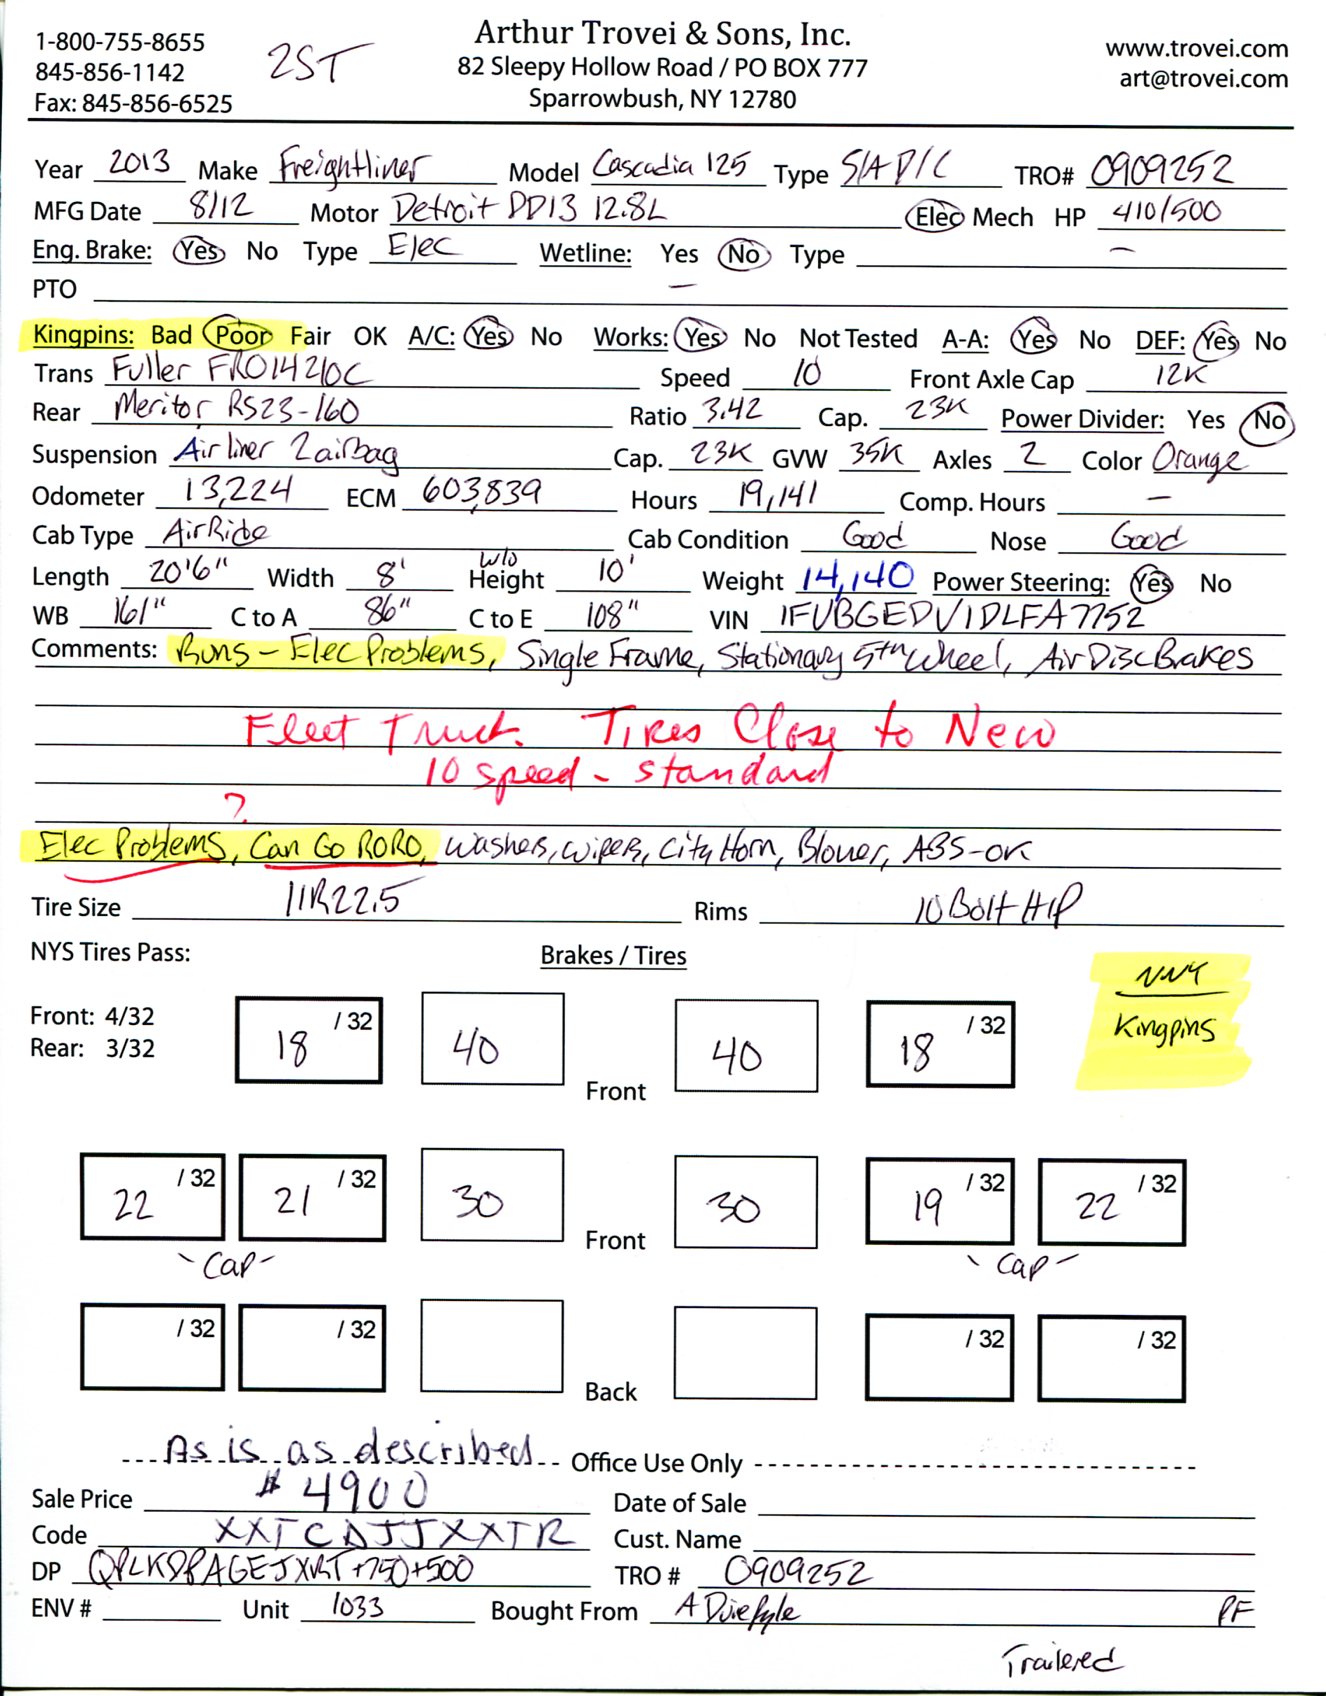 Arthur Trovei & Sons, Inc.
1-800-755-8655 2ST 82 Sleepy Hollow Road / PO BOX 777 www.trovei.com
845-856-1142 Sparrowbush, NY 12780 art@trovei.com
Fax: 845-856-6525
Year 2013 Make Freightliner Model Cascadia 125 Type S/A D/C TRO# 0909252
MFG Date 8/12 Motor Detroit DD13 12.8L Elec Mech HP 410/500
Eng. Brake: Yes No Type Elec Wetline: Yes No Type —
PTO —
Kingpins: Bad Poor Fair OK A/C: Yes No Works: Yes No Not Tested A-A: Yes No DEF: Yes No
Trans Fuller FRO14210C Speed 10 Front Axle Cap 12K
Rear Meritor RS23-160 Ratio 3.42 Cap. 23K Power Divider: Yes No
Suspension Airliner 2airbag Cap. 23K GVW 35K Axles 2 Color Orange
Odometer 13,224 ECM 603,839 Hours 19,141 Comp. Hours —
Cab Type AirRide Cab Condition Good Nose Good
Length 20'6" Width 8' w/o Height 10' Weight 14,140 Power Steering: Yes No
WB 161" C to A 86" C to E 108" VIN 1FUBGEDV1DLFA7752
Comments: Runs - Elec Problems, Single Frame, Stationary 5th Wheel, Air Disc Brakes
Fleet Truck. Tires Close to New
10 speed - standard
?
Elec Problems, Can Go RORO, Washers, Wipers, City Horn, Blower, ABS-OK
Tire Size 11R22.5 Rims 10 Bolt H/P
NYS Tires Pass: Brakes / Tires
NNY
Kingpins
Front: 4/32
Rear: 3/32
18 /32 40 Front 40 18 /32
22 /32 21 /32 30 Front 30 19 /32 22 /32
- Cap - - Cap -
/32 /32 Back /32 /32
As is as described Office Use Only
Sale Price $4900 Date of Sale
Code XXTCDJJXXTR Cust. Name
DP QPLKDPAGEJXRT+750+500 TRO # 0909252
ENV # Unit 1033 Bought From A Duiepyle PF
Trailered